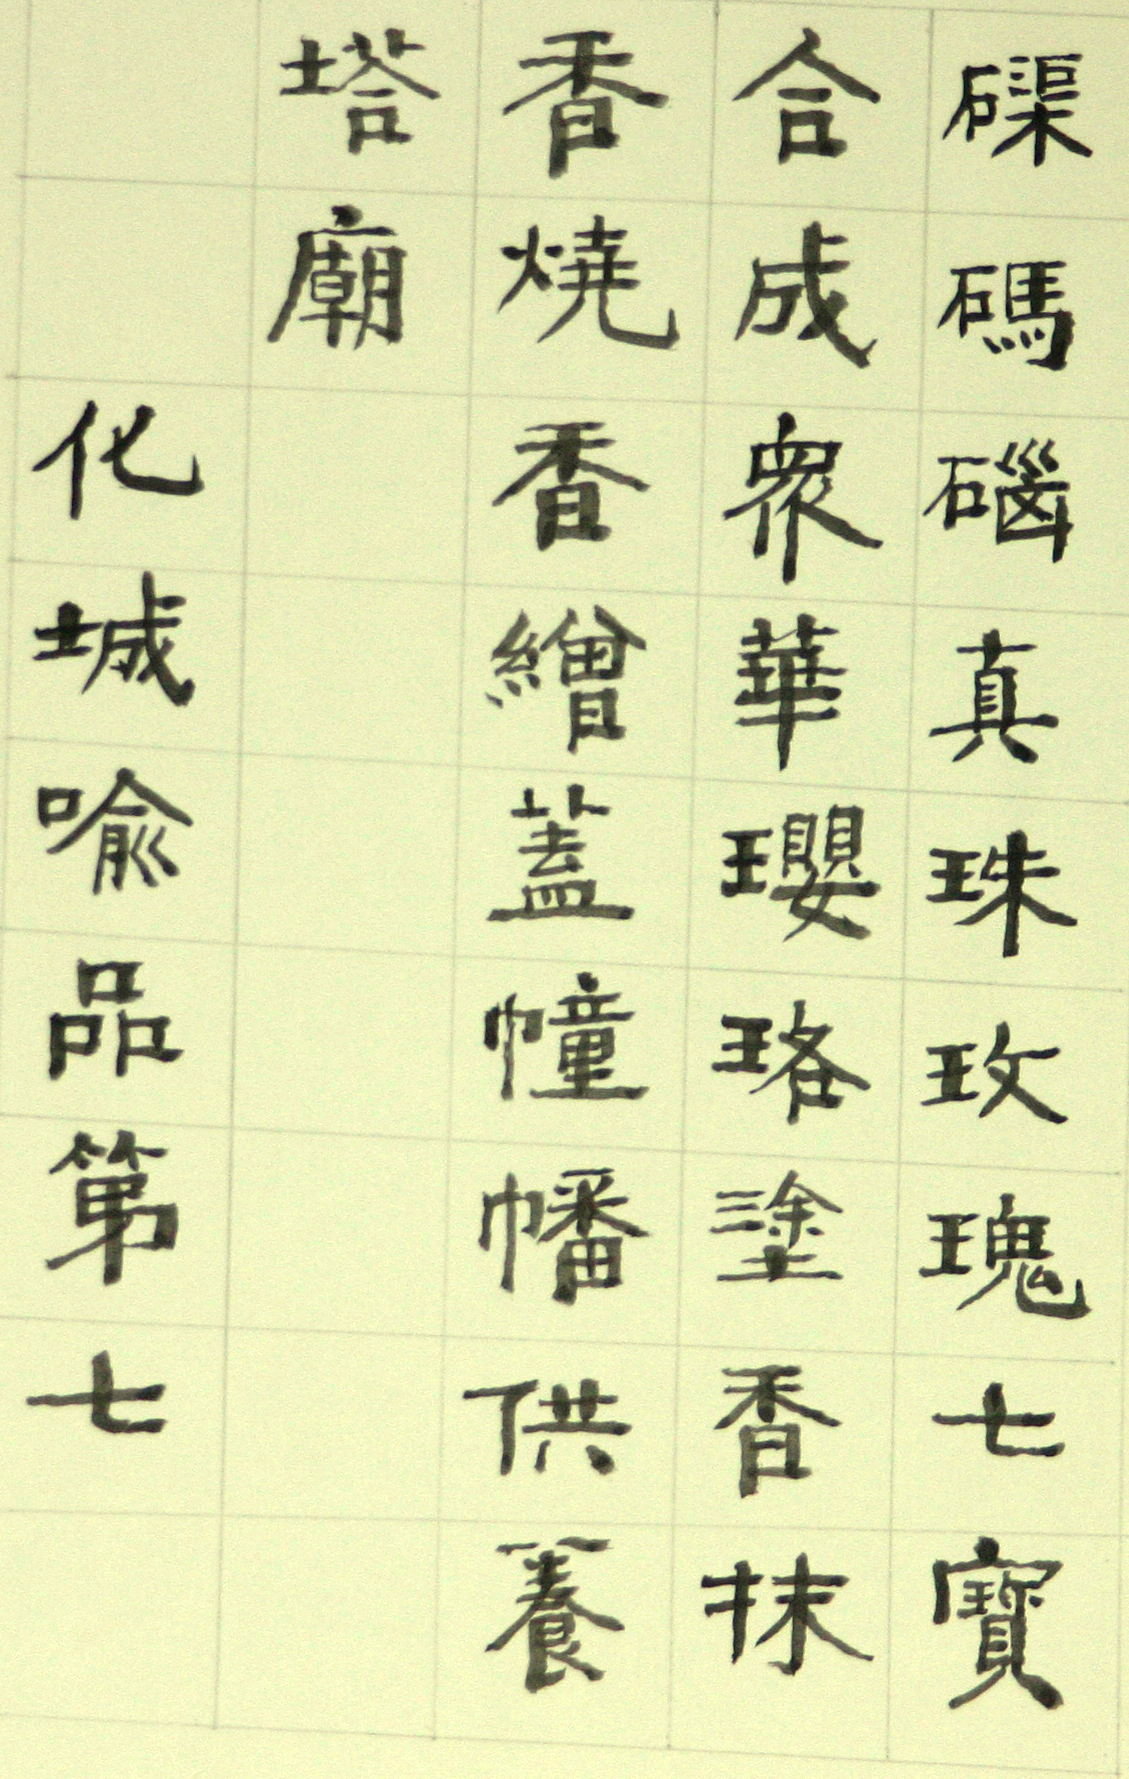 磲碼碯真珠玫瑰七寶
合成衆華瓔珞塗香抹
香燒香繒蓋幢幡供養
塔廟
化城喻品第七